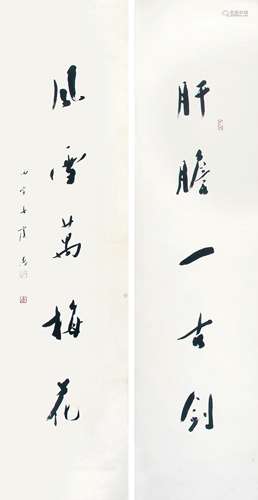 肝膽一古劍
風雪萬梅花